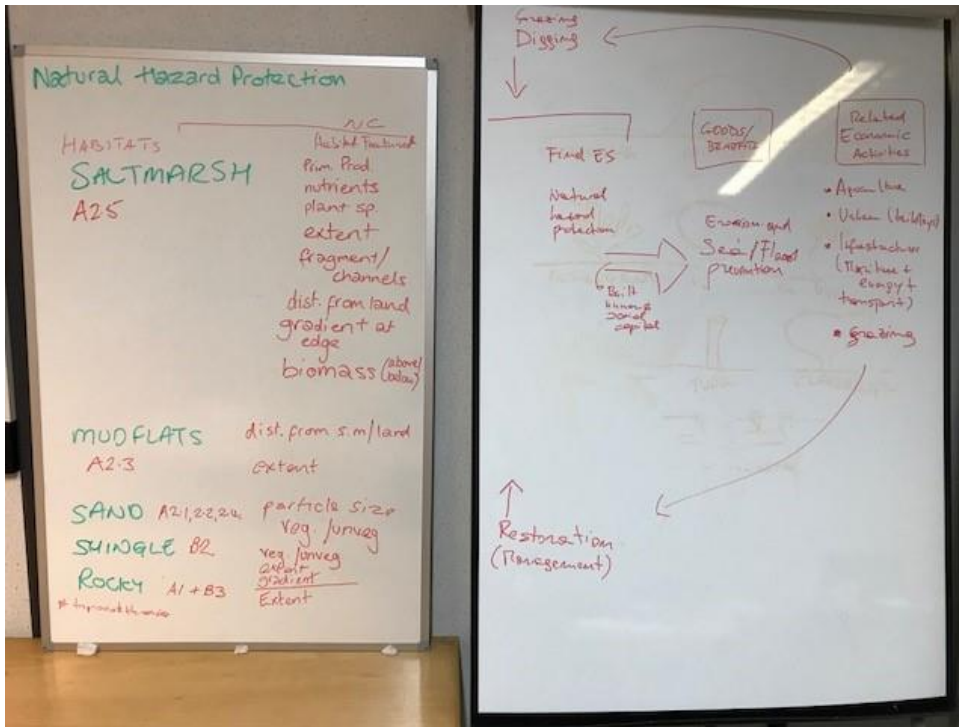 Natural Hazard Protection
NC
HABITATS
Habitat Features
SALTMARSH
A2.5
Prim. Prod.
nutrients
plant sp.
extent
fragment/
channels
dist. from land
gradient at
edge
biomass (above/
below)
MUDFLATS
dist. from s.m/land
A2.3
extent
SAND A2.1, 2.2, 2.4
particle size
veg. /unveg
SHINGLE B2
veg. /unveg
extent
gradient
ROCKY A1 + B3
Extent
Grazing
Digging
Final ES
GOODS/
BENEFITS
Related
Economic
Activities
Natural
hazard
protection
Erosion and
Sea/Flood
prevention
Built
human &
social
capital
• Aquaculture
• Urban (buildings)
• Infrastructure
(Maritime +
energy +
transport)
• Grazing
Restoration
(Management)